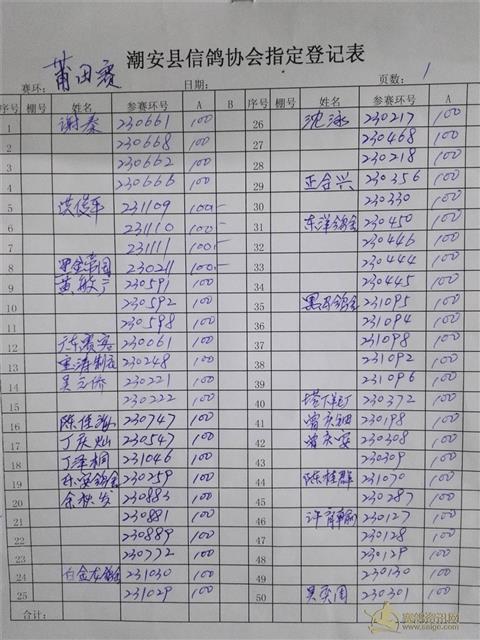 莆田赛
潮安县信鸽协会指定登记表
赛环: 日期: 页数: 1
序号 棚号 姓名 参赛环号 A B 序号 棚号 姓名 参赛环号 A
1 谢秦 230661 100 26 沈泳 230217 100
2 230668 100 27 230468 100
3 230662 100 28 230218 100
4 230666 100 29 正合兴 230356 100
5 洪俊平 231109 100 30 230330 100
6 231110 100 31 东洋鸽舍 230450 100
7 231111 100 32 230446 100
8 230211 100 33 230444 100
9 黄敏 230591 100 34 230445 100
10 230592 100 35 鸽舍 231095 100
11 230598 100 36 231094 100
12 230061 100 37 231098 100
13 230248 100 38 231092 100
14 吴立侨 230221 100 39 231096 100
15 230222 100 40 塔下 230372 100
16 陈佳 230747 100 41 曾庆 230198 100
17 丁庆灿 230547 100 42 曾庆 230308 100
18 丁泽桐 231046 100 43 230309 100
19 鸽舍 230259 100 44 陈桂群 231070 100
20 余秋发 230883 100 45 230287 100
21 230881 100 46 许 230127 100
22 230889 100 47 230128 100
23 230772 100 48 230129 100
24 白金龙鸽舍 231030 100 49 230130 100
25 231029 100 50 吴奕周 230301 100
合计:
赛鸽资讯网
www.saige.com